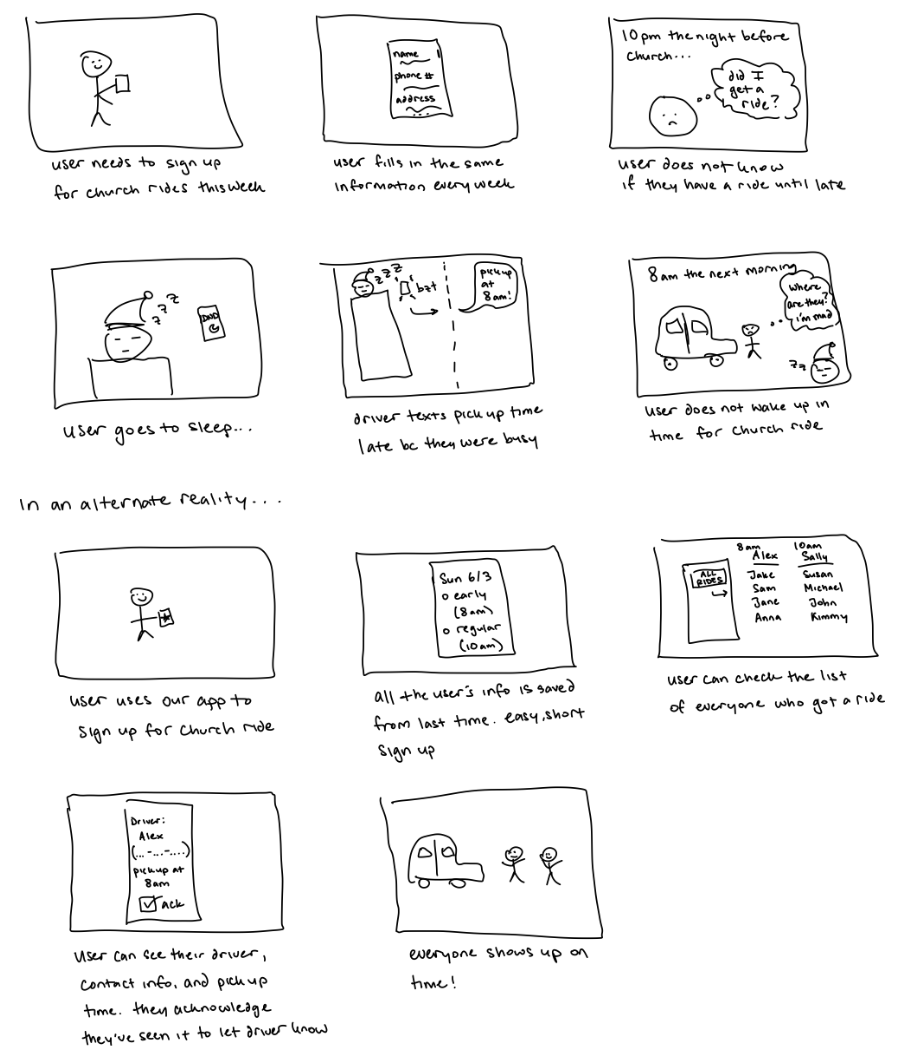 user needs to sign up
for church rides this week
name
phone #
address
...
user fills in the same
information every week
10pm the night before
church...
did I
get a
ride?
user does not know
if they have a ride until late
z z z
DND
user goes to sleep...
z z z
bzt
pick up
at
8am!
driver texts pick up time
late bc they were busy
8am the next morning
where
are they?
i'm mad
zz
user does not wake up in
time for church ride
in an alternate reality...
user uses our app to
sign up for church ride
Sun 6/3
o early
(8am)
o regular
(10am)
all the user's info is saved
from last time. easy, short
sign up
ALL
RIDES
8am 10am
Alex Sally
Jake Susan
Sam Michael
Jane John
Anna Kimmy
user can check the list
of everyone who got a ride
Driver:
Alex
(...-...-....)
pickup at
8am
Ack
user can see their driver,
contact info, and pick up
time. they acknowledge
they've seen it to let driver know
everyone shows up on
time!